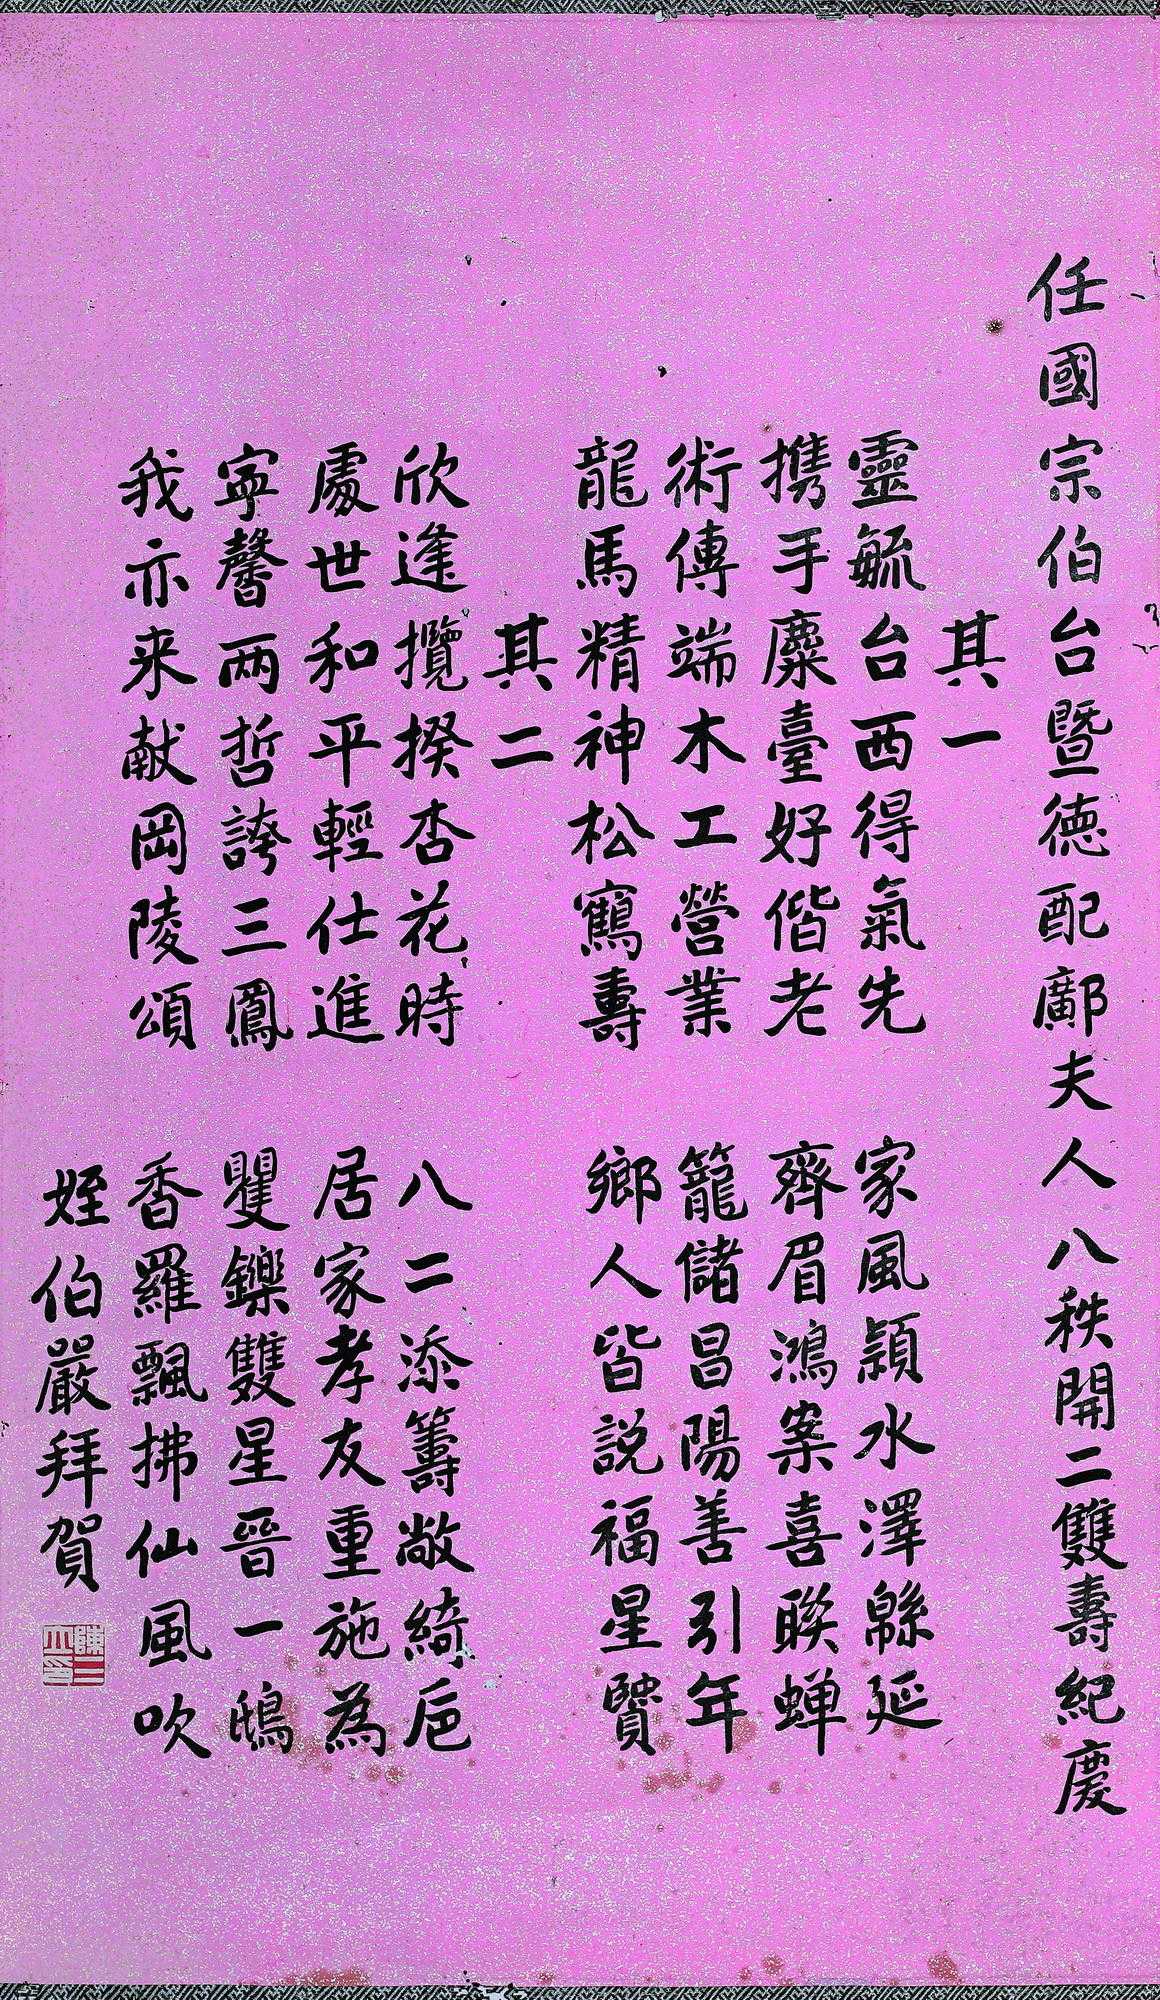 任國宗伯台暨德配鄺夫人八秩開二雙壽紀慶
其一
靈毓台西得氣先　家風潁水澤緜延
携手麋臺好偕老　齊眉鴻案喜聯蟬
術傳端木工營業　籠儲昌陽善引年
龍馬精神松鶴壽　鄉人皆說福星賢
其二
欣逢攬揆杏花時　八二添籌敞綺卮
處世和平輕仕進　居家孝友重施為
寧馨兩哲誇三鳳　矍鑠雙星晉一鴟
我亦來献岡陵頌　香羅飄拂仙風吹
姪伯嚴拜賀